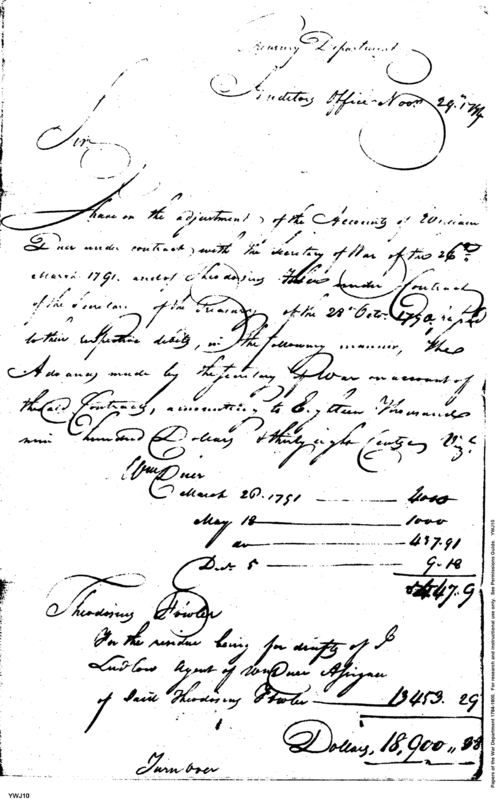 Treasury Department
Auditors Office Novr 29th 1794
Sir
I have on the adjustment of the Accounts of William
Duer under contract with the Secretary of War of the 26th
March 1791. and of Theodosius Fowler under Contract
of the Secretary of the Treasury of the 28th Octr. 1790
to their respective debits, in the following manner, the
Advances made by the Secretary of War on account of
the said Contracts, amounting to Eighteen Thousand
nine hundred Dollars & thirty eight Cents, Vizt
Wm Duer
March 26. 1791 4000
May 18 1000
do 437.91
Dec. 5 9.18
5447.9
Theodosius Fowler
For the residue being for drafts of J
Ludlow Agent of Wm Duer Assignee
of said Theodosius Fowler 13453.29
Dollars, 18,900,, 38
Turn over
YWJ10
Papers of the War Department 1784-1800. For research and instructional use only. See Permissions Guide. YWJ10